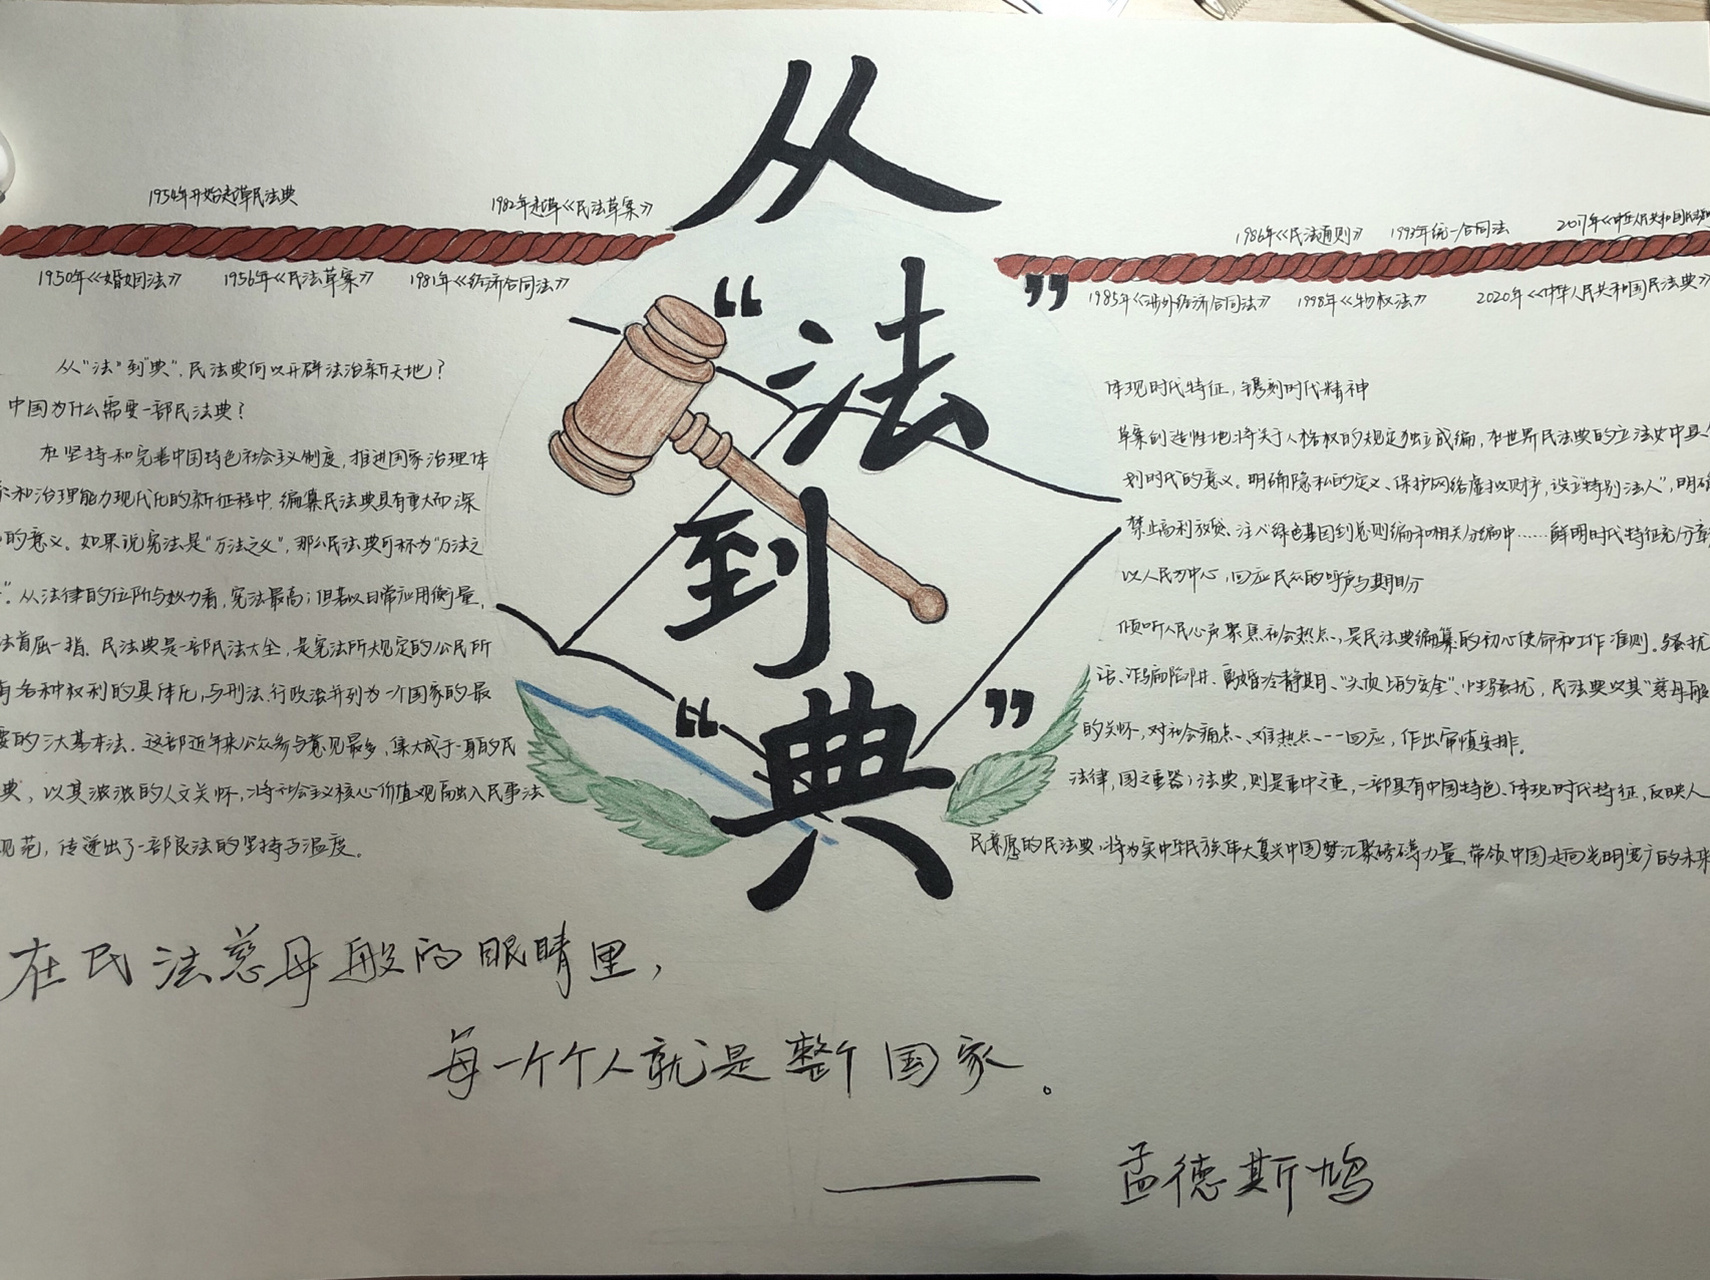 从
“法”
到
“典”
1954年开始起草民法典
1982年起草《民法草案》
1950年《婚姻法》
1956年《民法草案》
1981年《经济合同法》
1986年《民法通则》
1993年统一合同法
2017年《中华人民共和国民法
1985年《涉外经济合同法》
1998年《物权法》
2020年《中华人民共和国民法典》
从“法”到“典”,民法典何以开辟法治新天地?
中国为什么需要一部民法典?
在坚持和完善中国特色社会主义制度,推进国家治理体
和治理能力现代化的新征程中,编纂民法典具有重大而深
的意义。如果说宪法是“万法之父”,那么民法典可称为“万法之
”。从法律的位阶与效力看,宪法最高;但若以日常应用衡量,
法首屈一指。民法典是一部民法大全,是宪法所规定的公民所
有各种权利的具体化,与刑法、行政法并列为一个国家的最
要的三大基本法。这部近年来公众参与意见最多,集大成于一身的民
典,以其浓浓的人文关怀,将社会主义核心价值观融入民事法
规范,传递出了一部良法的坚持与温度。
体现时代特征,镌刻时代精神
草案创造性地将关于人格权的规定独立成编,在世界民法典的立法史中具
划时代的意义。明确隐私的定义、保护网络虚拟财产,设立“特别法人”,明确
禁止高利放贷、注入绿色基因到总则编和相关分编中……鲜明时代特征充分彰
以人民为中心,回应民众的呼声与期盼
倾听人民心声聚焦社会热点,是民法典编纂的初心使命和工作准则。骚扰
话、诈骗陷阱、离婚冷静期、“头顶上的安全”、性骚扰,民法典以其“慈母般
的关怀,对社会痛点、难热点一一回应,作出审慎安排。
法律,国之重器;法典,则是重中之重,一部具有中国特色、体现时代特征,反映人
民意愿的民法典,将为实中华民族伟大复兴中国梦汇聚磅礴力量,带领中国走向光明宽广的未来
在民法慈母般的眼睛里,
每一个个人就是整个国家。
—— 孟德斯鸠